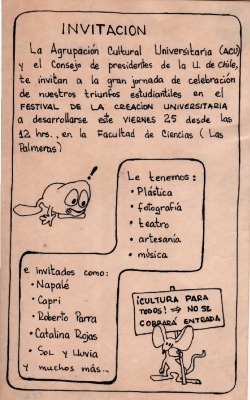 INVITACION
La Agrupación Cultural Universitaria (ACU)
y el Consejo de presidentes de la U. de Chile,
te invitan a la gran jornada de celebración
de nuestros triunfos estudiantiles en el
FESTIVAL DE LA CREACION UNIVERSITARIA
a desarrollarse este VIERNES 25 desde las
12 hrs., en la Facultad de Ciencias (Las
Palmeras)
!
Le tenemos:
• Plástica
• fotografía
• teatro
• artesanía
• música
e invitados como:
• Napalé
• Capri
• Roberto Parra
• Catalina Rojas
• Sol y Lluvia
y muchos más...
¡CULTURA PARA
TODOS! ⇒ NO SE
COBRARÁ ENTRADA